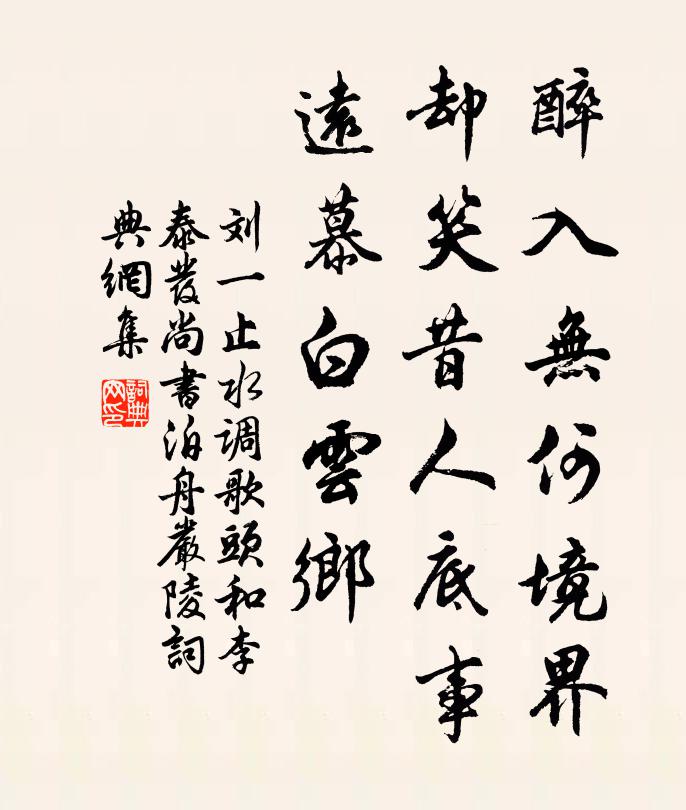 醉入無何境界
却笑昔人底事
遠慕白雲鄉
刘一止水调歌頭和李
泰發尚書泊舟嚴陵詞
典網集
詞典網印